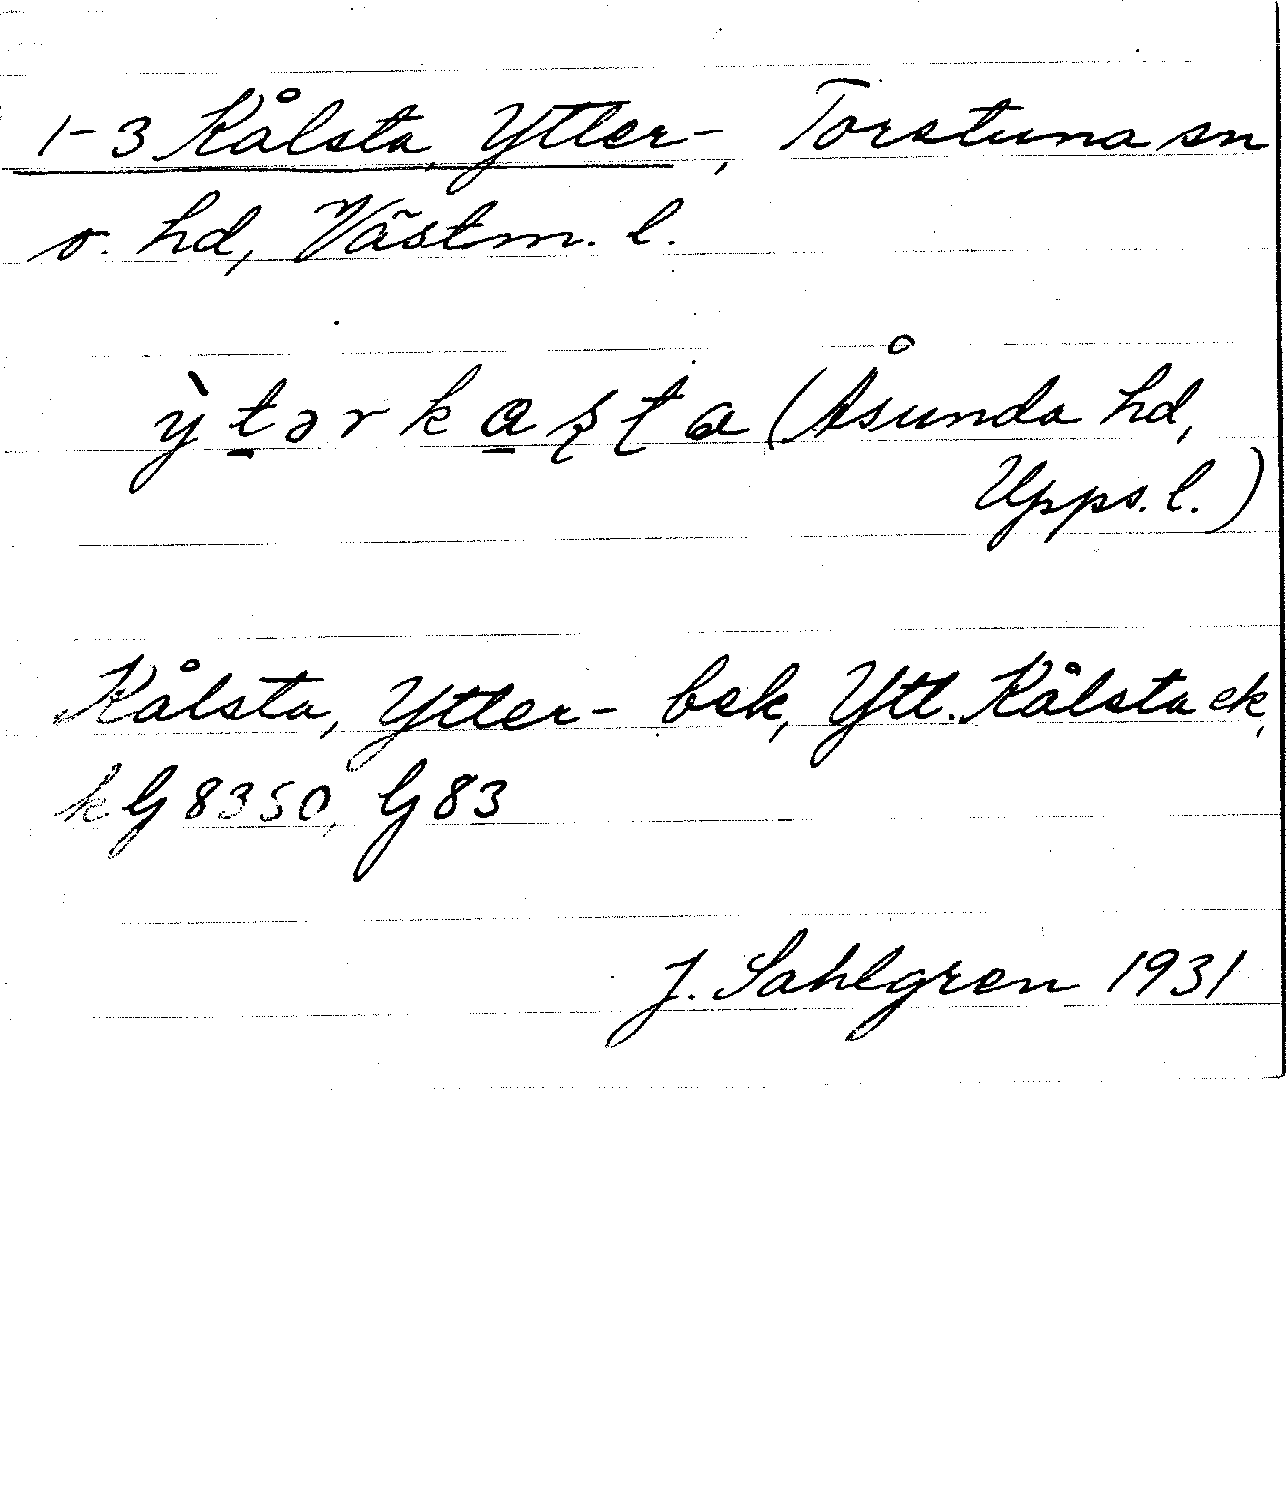 1-3 Kålsta, Ytter-, Torstuna sn
o. hd, Västm. l.
ỳtərkaʂʈa (Åsunda hd,
Upps. l.)
Kålsta, Ytter- bek, Ytt. Kålsta ek,
k G 8350, G 83
J. Sahlgren 1931